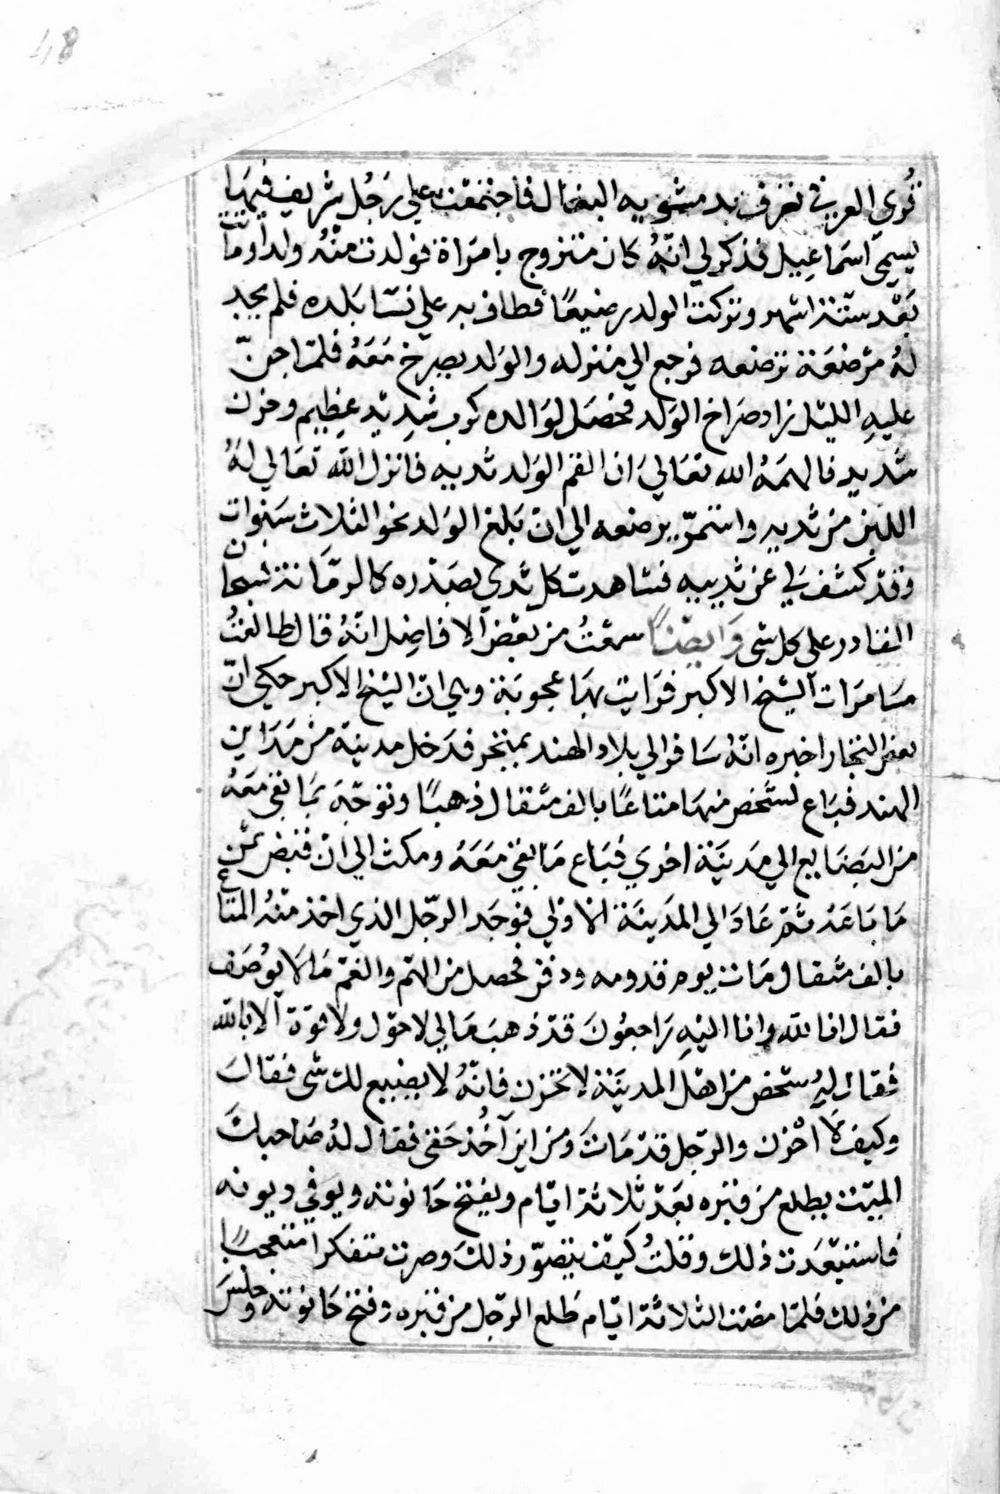 48
قُري العرب في تعرف بدمشوبيه البغال فاجتمعت علي رَجُل شريف فيها
يسمي اسماعيل فذكر لي انّهُ كان متزوج بامراة فولدت منهُ ولدا وماتت
بَعْد ستّتة اشهر وتركت الولد رضيعًا فطاف به علي نسا بَلده فلم يجد
لهُ مرضعَة ترضعه فرجع الي منزله والوَلد يصرخ مَعَهُ فلمّا جنّ
عليهِ الليل زاد صراخ الولد فحصَل لوَالده كرب شديد عظيم وحزن
شديد فالهمَهُ الله تعَالي ان القم الوَلد ثديه فانزل الله تعَالي لهُ
اللبن من ثديه واستمرّ يرضعه الي انْ بَلغ الوَلد نحو الثلاث سَنوات
وقد كشف لي عن ثدييه فشاهدت كل ثدي بصَدْره كالرمّانة فسبحان
القادر علي كل شي وَايضًا سمعْتُ من بعْض الافاضِل انّهُ قال طالعْتُ
مسَامرَات الشيخ الاكبر فرَايت بهَا عجوبَة وهي انّ الشيخ الاكبر حكي انّ
بعض التجار اخبره انّهُ سَافر الي بلاد الهند بمتجر فدَخل مدينة من مَدَاين
الهند فبَاع لشخص منهَا متاعًا بالف مثقال ذهبًا وتوجّهَ بمَا بقي مَعَهُ
من البَضَايع الي مَدينَة اخري فبَاع مَا بقي مَعَهُ ومكث الي انْ قبَض ثمن
مَا بَاعَهُ ثمّ عَادَ الي المَدينَة الاولي فوَجَد الرجُل الذي اخذ منهُ المتاع
بالف مثقال مَات يوم قدومه ودفن فحصل من الهمّ والغمّ مَا لا يُوصَف
فقال انا لله وانا اليْهِ رَاجعُونَ قدْ ذهبَ مَالي لا حوْل ولا قوّة الا بالله
فقال لهُ شخص من اهْل المدينَة لا تحزن فانّهُ لا يضيع لك شي فقالَ
وكيف لا احْزن والرجل قدْ مَاتَ ومن اين آخُذ حَقي فقال لهُ صَاحبكَ
الميّت يطلع من قبره بَعَد ثلاثة ايّام ويفتح حَانوته ويوفي ديونه
فاستبْعَدت ذلك وقلتُ كيْف يتصوّر ذلكَ وصرت متفكرا متعجبًا
من ذلك فلمّا مضت الثلاثة ايّام طَلع الرجل من قبره وفتح حَانوته وجلسَ